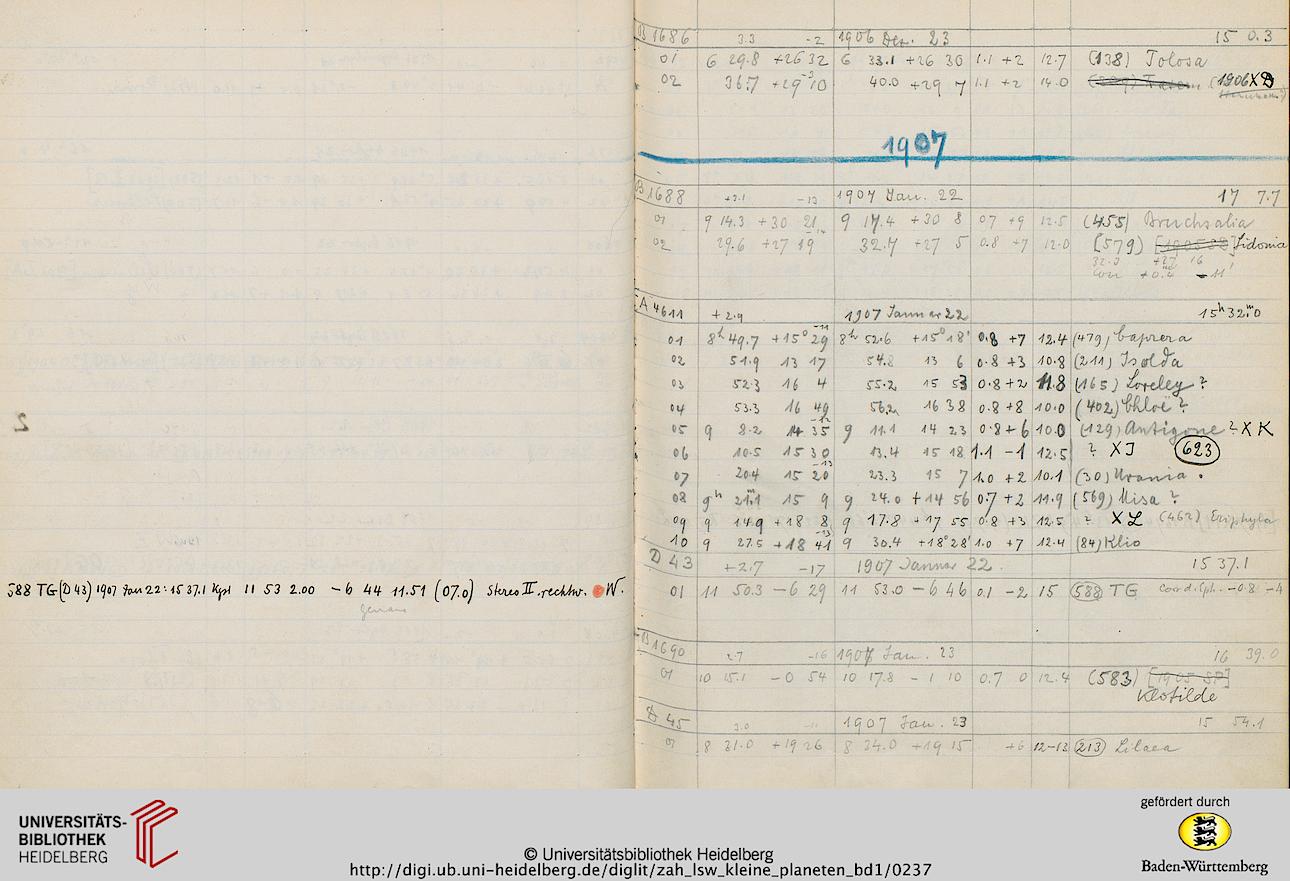 588 TG (D 43) 1907 Jan 22: 15 37.1 Kgst 11 53 2.00 −6 44 11.51 (07.0) Stereo II. rechtw. W.
genau
B 1686 3.3 -2 1906 Dez. 23 15 0.3
01 6 29.8 +26 32 6 33.1 +26 30 1.1 +2 12.7 (138) Tolosa
02 36.7 +29 10 40.0 +29 7 1.1 +2 14.0 (1906 XD
1907
B 1688 +3.1 -13 1907 Jan. 22 17 7.7
01 9 14.3 +30 21 9 17.4 +30 8 0.7 +9 12.5 (455) Bruchsalia
02 29.6 +27 19 32.7 +27 5 0.8 +7 12.0 (579) Sidonia
32.3 +27 16
corr +0.4 -11'
A 4611 +2.9 1907 Januar 22 15h 32m.0
-11
01 8h 49.7 +15° 29 8h 52.6 +15° 18' 0.8 +7 12.4 (479) Caprera
02 51.9 13 17 54.8 13 6 0.8 +3 10.8 (211) Isolda
03 52.3 16 4 55.2 15 53 0.8 +2 11.8 (165) Loreley ?
04 53.3 16 49 56.2 16 38 0.8 +8 10.0 (402) Chloë ?
-12
05 9 8.2 14 35 9 11.1 14 23 0.8 +6 10.0 (129) Antigone ? XK
06 10.5 15 30 13.4 15 18 1.1 -1 12.5 ? XJ (623)
-13
07 20.4 15 20 23.3 15 7 1.0 +2 10.1 (30) Urania .
08 9h 21m.1 15 9 9 24.0 +14 56 0.7 +2 11.9 (569) Misa ?
09 9 14.9 +18 8 9 17.8 +17 55 0.8 +3 12.5 ? XL (462) Eriphyla
-13
10 9 27.5 +18 41 9 30.4 +18° 28' 1.0 +7 12.4 (84) Klio
D 43 +2.7 -17 1907 Januar 22. 15 37.1
01 11 50.3 −6 29 11 53.0 −6 46 0.1 -2 15 (588) TG coord. (ph. -0.8' -4
B 1690 2.7 -16 1907 Jan. 23 16 39.0
01 10 15.1 -0 54 10 17.8 -1 10 0.7 0 12.4 (583) [1905 SP]
Klotilde
D 45 3.0 -11 1907 Jan. 23 15 54.1
01 8 31.0 +19 26 8 34.0 +19 15 +6 12-13 (213) Lilaea
UNIVERSITÄTS-
BIBLIOTHEK
HEIDELBERG
© Universitätsbibliothek Heidelberg
http://digi.ub.uni-heidelberg.de/diglit/zah_lsw_kleine_planeten_bd1/0237
gefördert durch
Baden-Württemberg